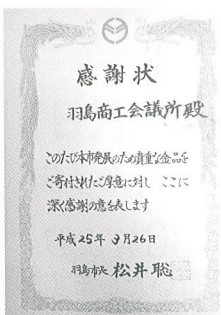 感謝状
羽島商工会議所殿
このたび本市発展のため貴重な金品を
ご寄付されたご厚意に対し ここに
深く感謝の意を表します
平成25年 9月26日
羽島市長 松井聡